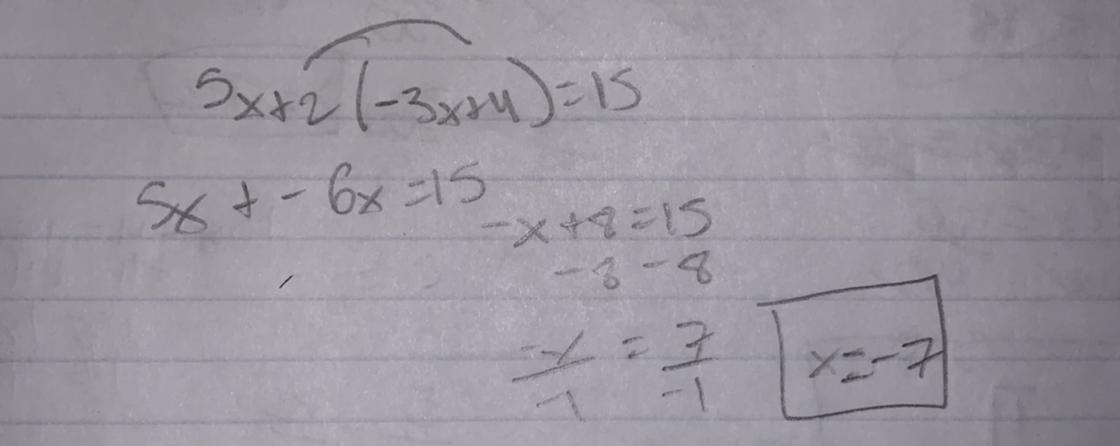 5x+2(-3x+4)=15
5x + - 6x =15
-x+8=15
-8 -8
-x/-1 = 7/-1
x=-7